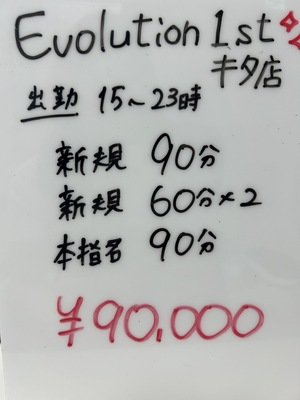 Evolution 1st
キタ店
出勤 15〜23時
新規 90分
新規 60分×2
本指名 90分
¥90,000